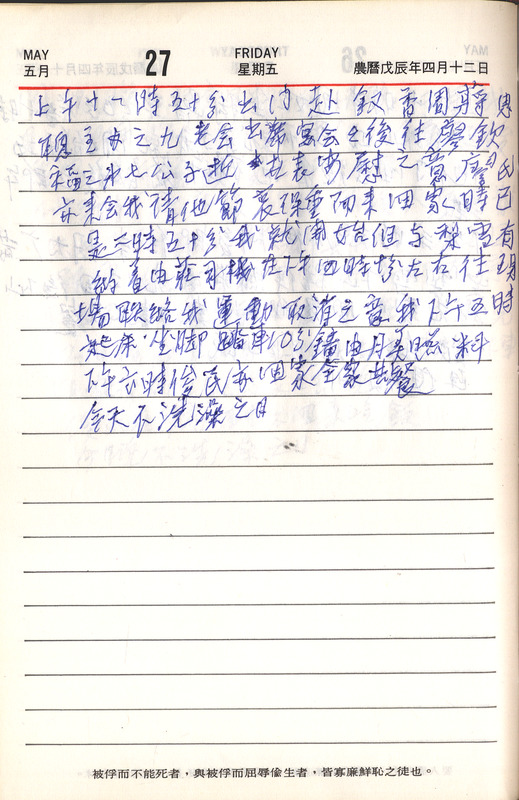 MAY
五月
27
FRIDAY
星期五
農曆戊辰年四月十二日
上午十一時五十分出門赴敘香周蔣
聰主办之九老会出席宴会之後往廖欽
福之第七公子逝 表安慰之意廖
亦来会我請他節哀保重而来回家時已
是 時五十分我就 但与梨雪有
約 由莊司機在下午四時 分左右往現
場联絡我運動取消之意我下午五時
起床坐脚踏車10分鐘由月美 料
下午六時俊民亦回家全家共餐
今天不洗澡之日
被俘而不能死者，與被俘而屈辱偷生者，皆寡廉鮮恥之徒也。